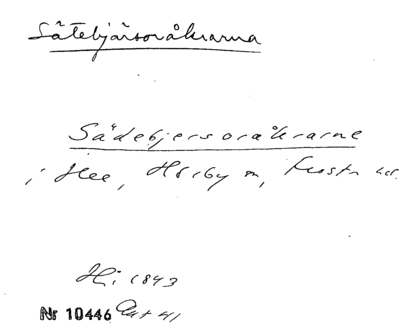 Sätebjärsoråkrarna
Sädebjersoråkrarne
i Hee, Hörby m, Frosta hd.
Hi 1843
Nr 10446 Akt 41